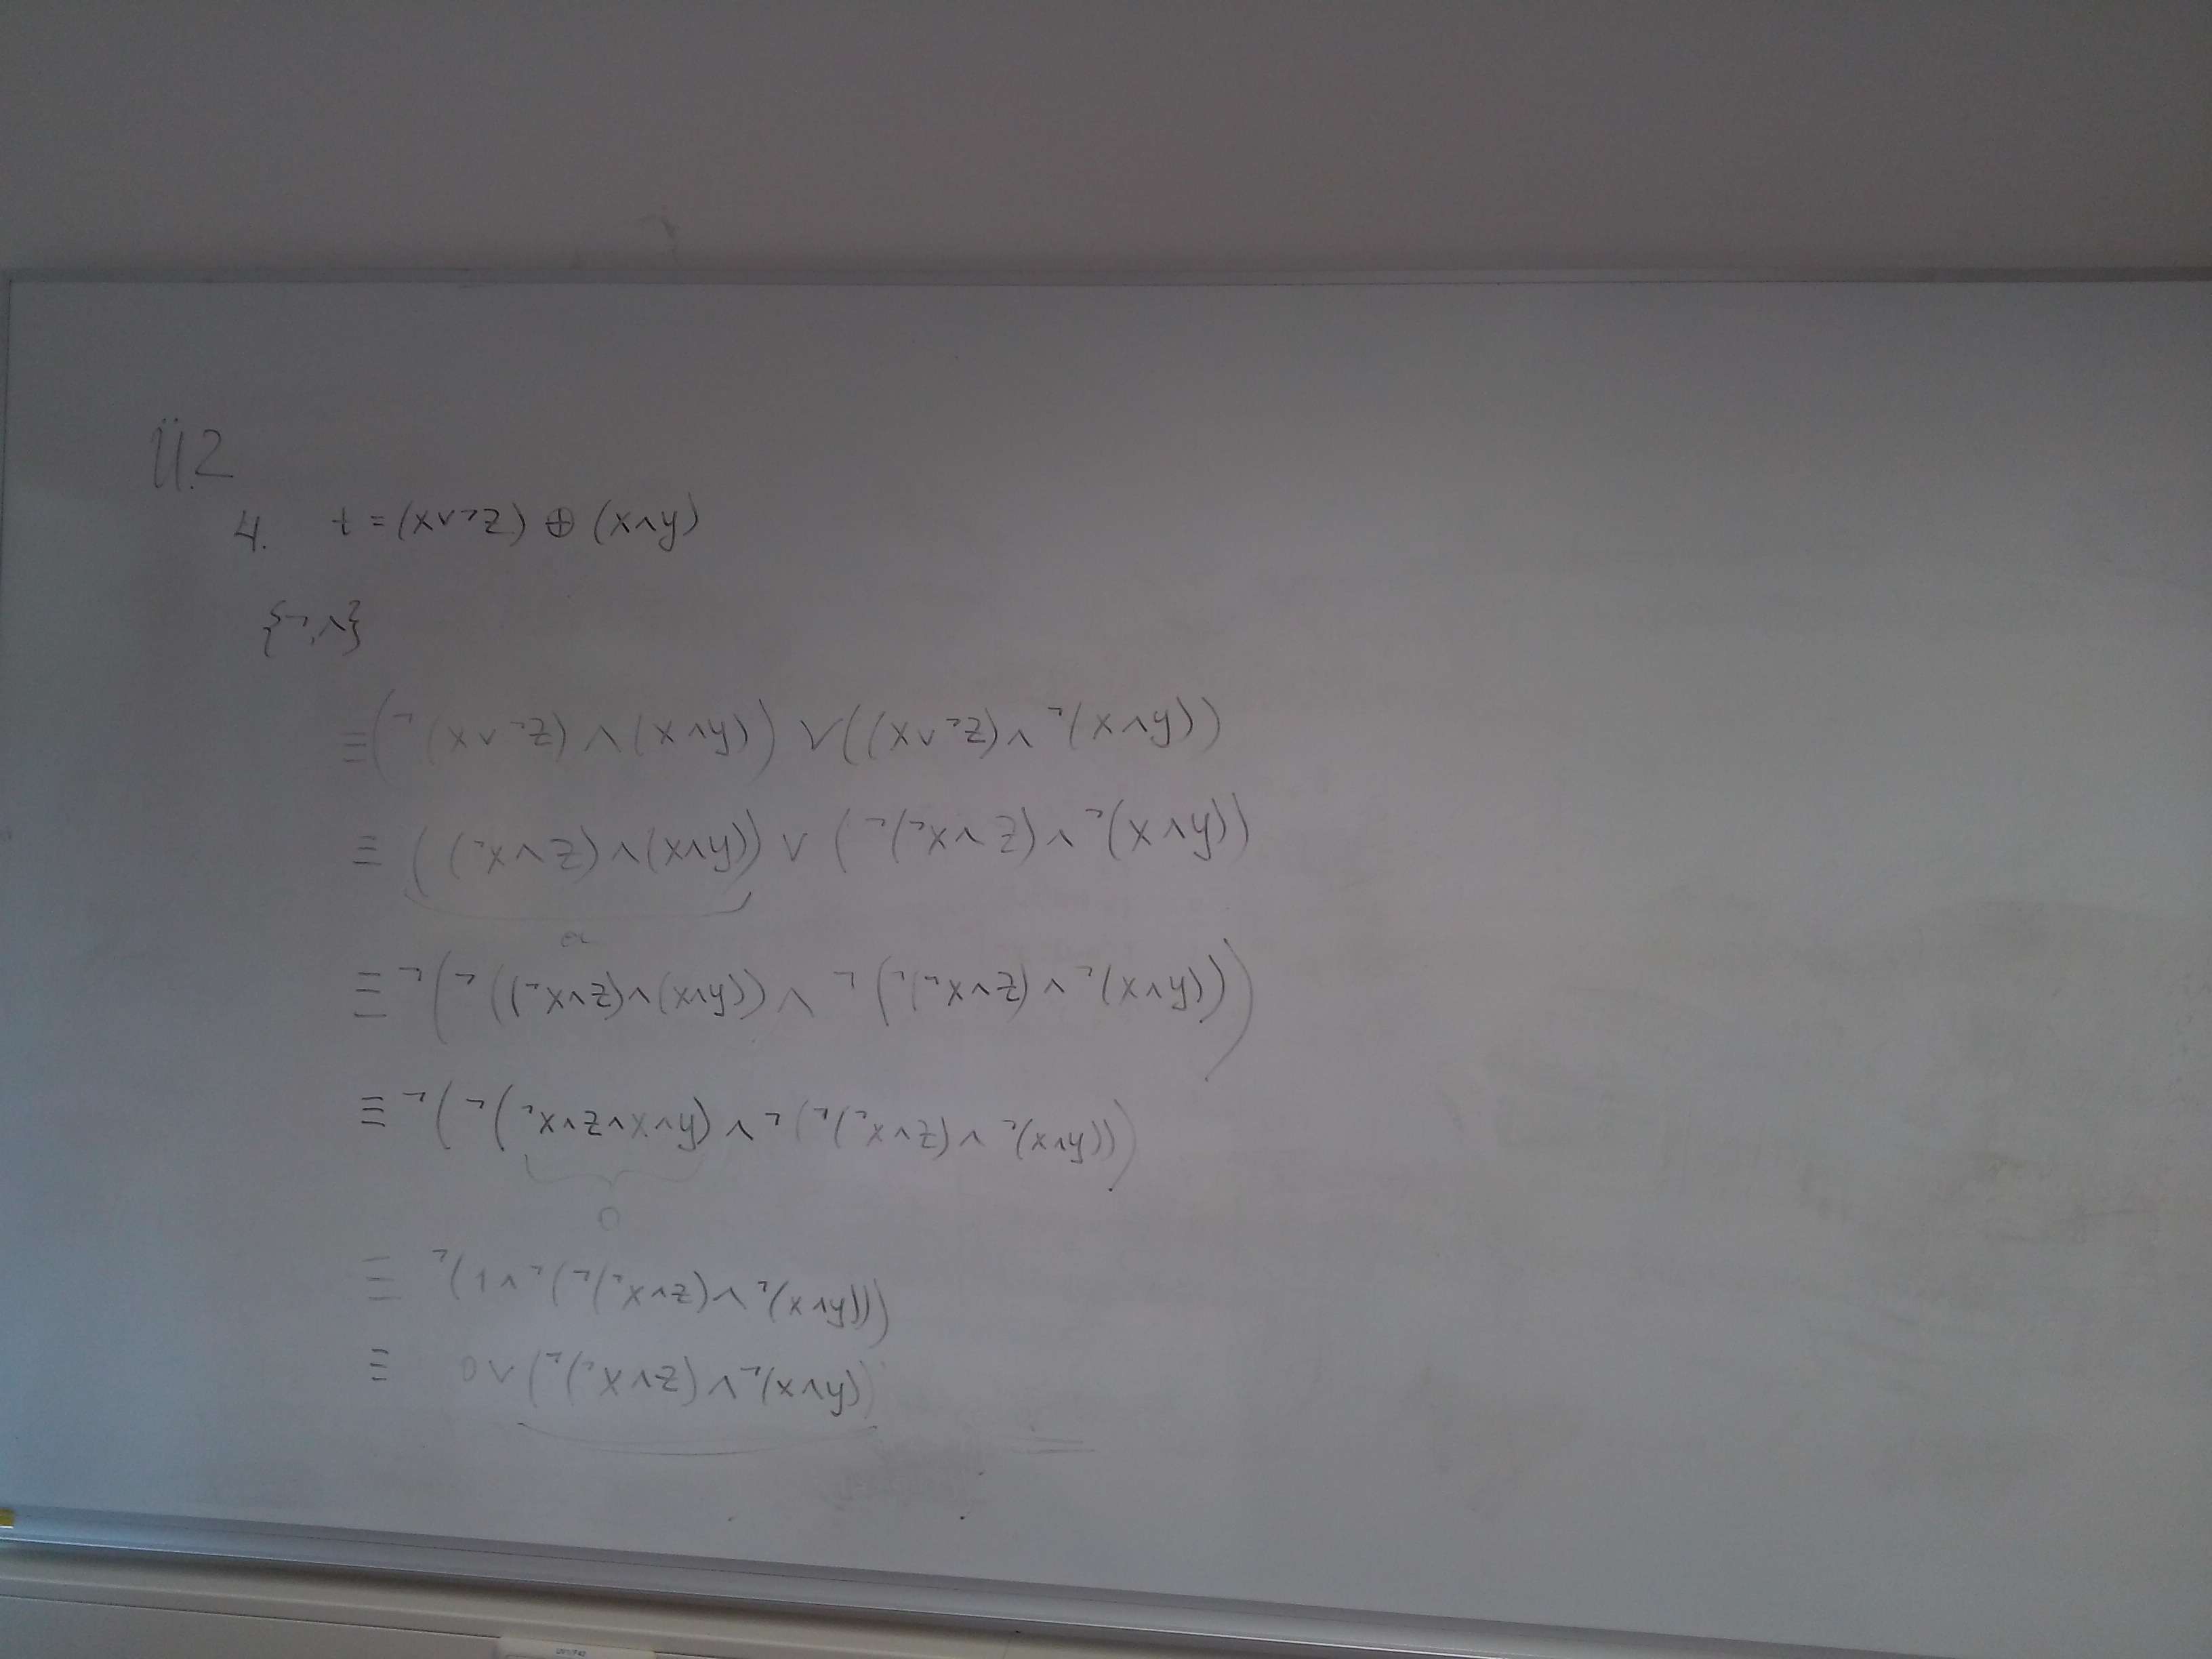 Ü.2
4. t = (x∨¬z) ⊕ (x∧y)
{¬,∧}
≡ (¬(x∨¬z) ∧ (x∧y)) ∨ ((x∨¬z) ∧ ¬(x∧y))
≡ ((¬x∧z) ∧ (x∧y)) ∨ (¬(¬x∧z) ∧ ¬(x∧y))
≡ ¬(¬((¬x∧z)∧(x∧y)) ∧ ¬(¬(¬x∧z) ∧ ¬(x∧y)))
≡ ¬(¬(¬x∧z∧x∧y) ∧ ¬(¬(¬x∧z) ∧ ¬(x∧y)))
0
≡ ¬(1∧¬(¬(¬x∧z)∧¬(x∧y)))
≡ 0∨(¬(¬x∧z)∧¬(x∧y))